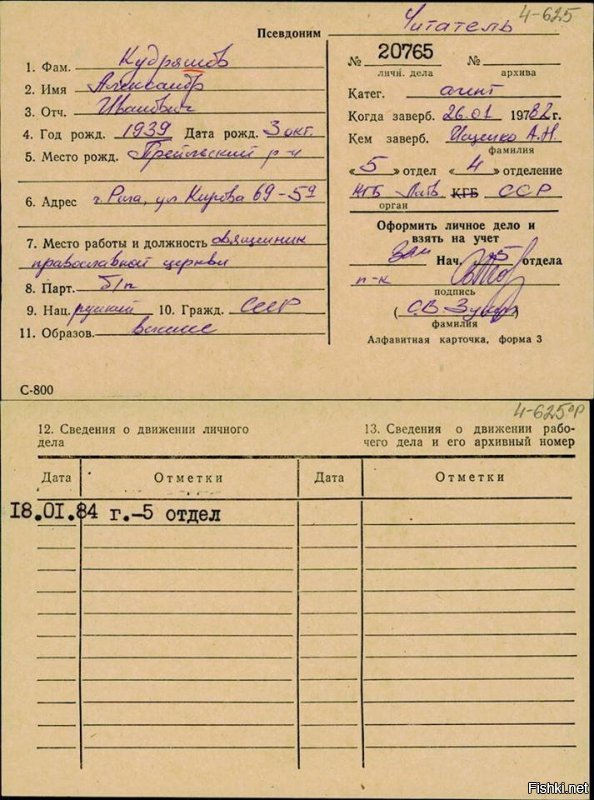 4-625
Псевдоним Читатель
1. Фам. Кудряшов
2. Имя Александр
3. Отч. Иванович
4. Год рожд. 1939 Дата рожд. 3 окт.
5. Место рожд. Прейльский р-н
6. Адрес г. Рига, ул Кирова 69-59
7. Место работы и должность священник
православной церкви
8. Парт. б/п
9. Нац. русский 10. Гражд. СССР
11. Образов. высшее
С-800
№ 20765 №
личн. дела архива
Катег. агент
Когда заверб. 26.01 1982 г.
Кем заверб. Ищенко А.Н.
фамилия
«5» отдел «4» отделение
КГБ Латв КГБ ССР
орган
Оформить личное дело и
взять на учет
Зам Нач. 5 отдела
п-к
подпись
(С.В.)
фамилия
Алфавитная карточка, форма 3
4-625 ор
12. Сведения о движении личного
дела
13. Сведения о движении рабо-
чего дела и его архивный номер
Дата Отметки Дата Отметки
18.01.84 г.-5 отдел
Fishki.net